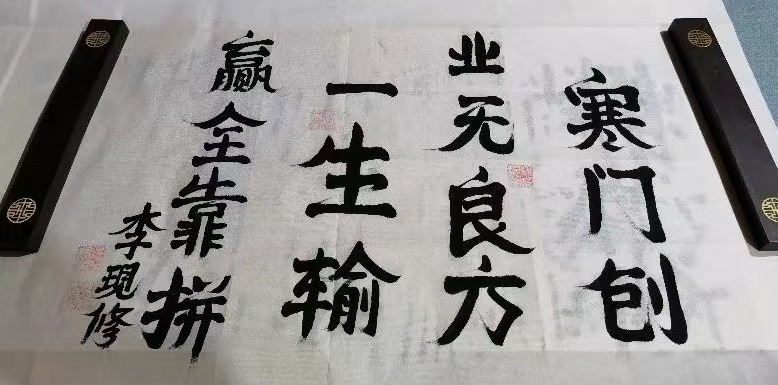 寒门创
业无良方
一生输
赢全靠拼
李现修